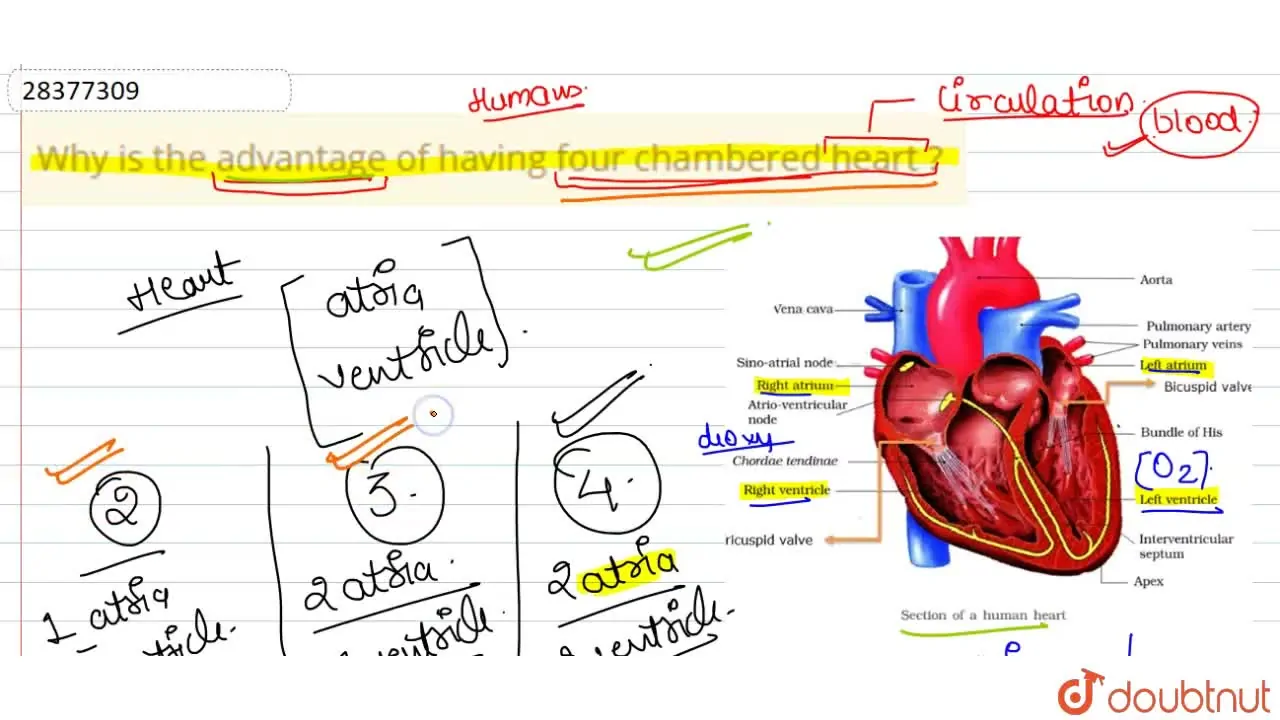 28377309
Humans.
Circulation.
blood.
Why is the advantage of having four chambered heart ?
Heart
atria
ventricle
Aorta
Vena cava
Pulmonary artery
Pulmonary veins
Sino-atrial node
Left atrium
Right atrium
Bicuspid valve
Atrio-ventricular
node
deoxy
Bundle of His
Chordae tendinae
[O2].
Right ventricle
Left ventricle
ricuspid valve
Interventricular
septum
Apex
2
3.
4.
1 atria
2 atria.
2 atria
ventricle.
ventricle.
Section of a human heart
doubtnut